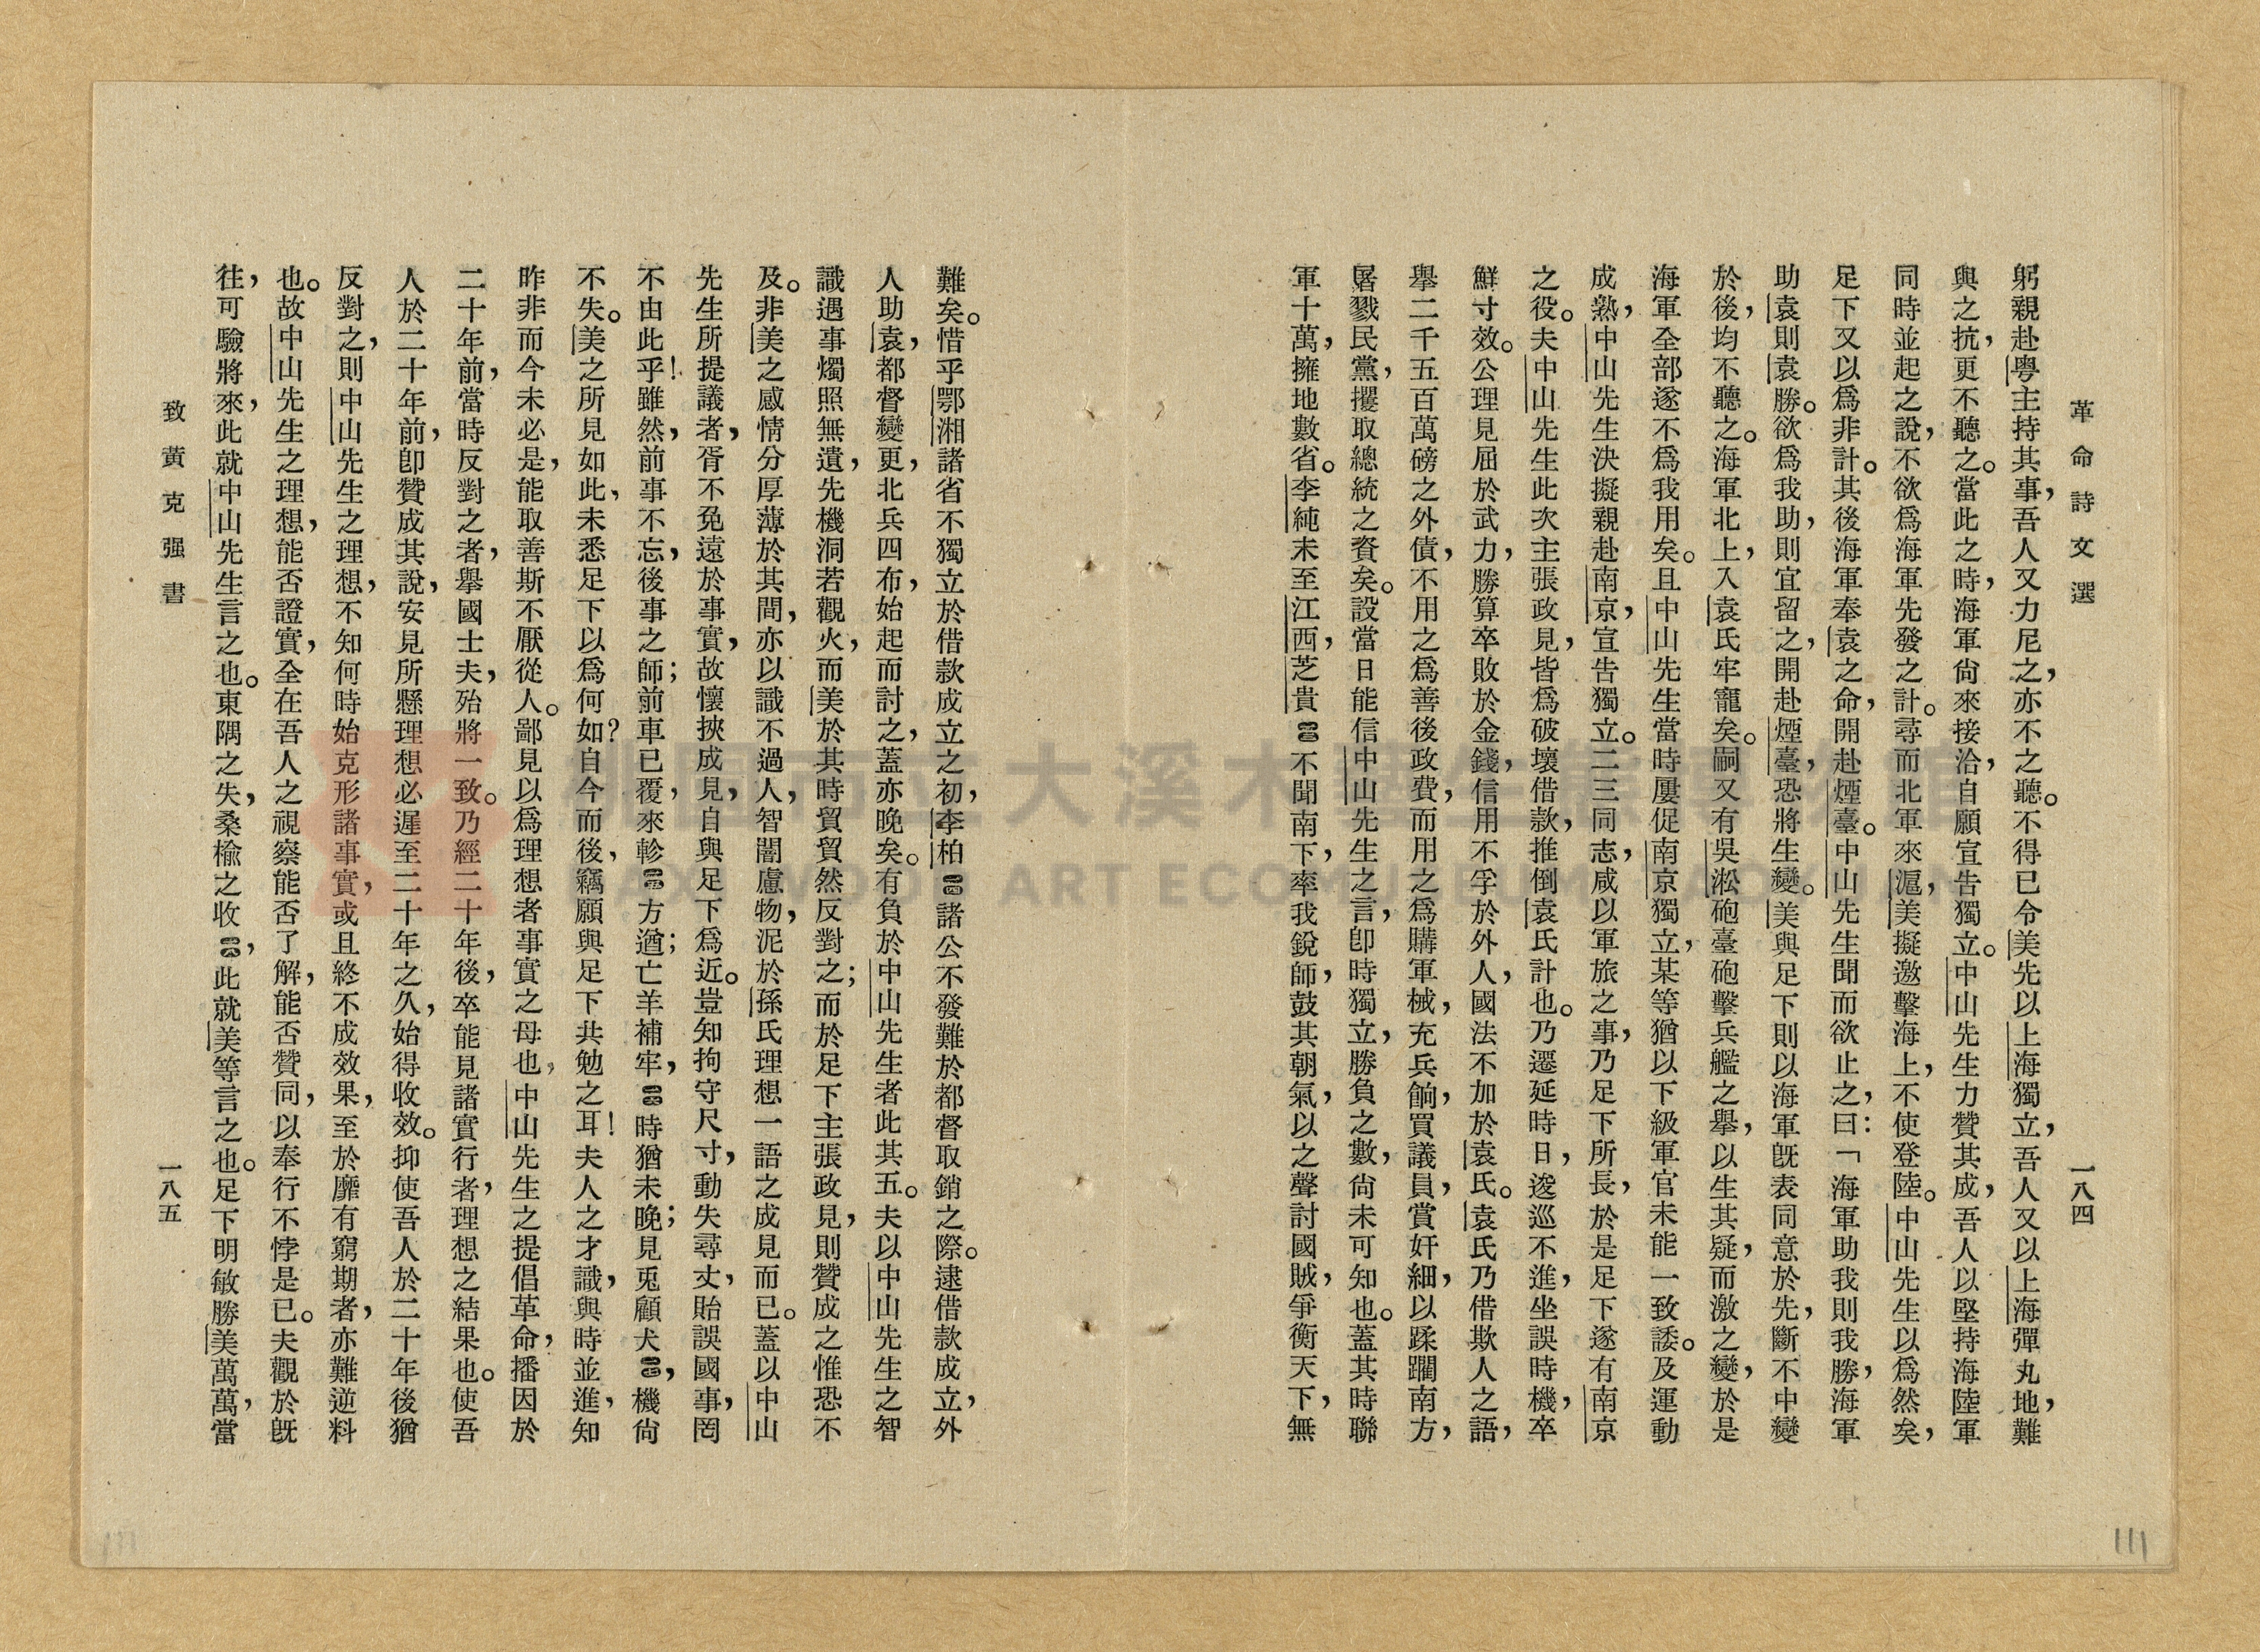 革命詩文選
一八四
躬親赴粵主持其事，吾人又力尼之，亦不之聽。不得已令美先以上海獨立，吾人又以上海彈丸地，難
與之抗，更不聽之。當此之時，海軍尙來接洽，自願宣告獨立。中山先生力贊其成，吾人以堅持海陸軍
同時並起之說，不欲爲海軍先發之計。尋而北軍來滬，美擬邀擊海上，不使登陸。中山先生以爲然矣，
足下又以爲非計。其後海軍奉袁之命，開赴煙臺。中山先生聞而欲止之，曰：「海軍助我則我勝，海軍
助袁則袁勝。欲爲我助，則宜留之，開赴煙臺，恐將生變。美與足下則以海軍旣表同意於先，斷不中變
於後，均不聽之。海軍北上，入袁氏牢寵矣。嗣又有吳淞砲臺砲擊兵艦之舉，以生其疑，而激之變，於是
海軍全部遂不爲我用矣。且中山先生當時屢促南京獨立，某等猶以下級軍官未能一致諉。及運動
成熟，中山先生決擬親赴南京，宣告獨立。二三同志，咸以軍旅之事，乃足下所長，於是足下遂有南京
之役。夫中山先生此次主張政見，皆爲破壞借款，推倒袁氏計也。乃遷延時日，逡巡不進，坐誤時機，卒
鮮寸效。公理見屈於武力，勝算卒敗於金錢，信用不孚於外人，國法不加於袁氏。袁氏乃借欺人之語，
舉二千五百萬磅之外債，不用之爲善後政費，而用之爲購軍械，充兵餉，買議員，賞奸細，以蹂躪南方，
屠戮民黨，攫取總統之資矣。設當日能信中山先生之言，卽時獨立，勝負之數，尙未可知也。蓋其時聯
軍十萬，擁地數省。李純未至江西，芝貴不聞南下，率我銳師，鼓其朝氣，以之聲討國賊，爭衡天下，無
難矣。惜乎鄂湘諸省不獨立於借款成立之初，李柏諸公不發難於都督取銷之際。逮借款成立，外
人助袁，都督變更，北兵四布，始起而討之，蓋亦晚矣。有負於中山先生者此其五。夫以中山先生之智
識，遇事燭照無遺，先機洞若觀火，而美於其時貿貿然反對之；而於足下主張政見，則贊成之惟恐不
及。非美之感情分厚薄於其間，亦以識不過人，智闇慮物，泥於孫氏理想一語之成見而已。蓋以中山
先生所提議者，胥不免遠於事實，故懷挾成見，自與足下爲近。豈知拘守尺寸，動失尋丈，貽誤國事，罔
不由此乎！雖然，前事不忘，後事之師；前車已覆，來軫方遒；亡羊補牢，時猶未晚；見兎顧犬，機尙
不失。美之所見如此，未悉足下以爲何如？自今而後，竊願與足下共勉之耳！夫人之才識，與時並進，知
昨非而今未必是，能取善斯不厭從人。鄙見以爲理想者事實之母也，中山先生之提倡革命，播因於
二十年前，當時反對之者，舉國士夫，殆將一致。乃經二十年後，卒能見諸實行者，理想之結果也。使吾
人於二十年前，卽贊成其說，安見所懸理想必遲至二十年之久，始得收效。抑使吾人於二十年後猶
反對之，則中山先生之理想，不知何時始克形諸事實，或且終不成效果，至於靡有窮期者，亦難逆料
也。故中山先生之理想，能否證實，全在吾人之視察能否了解，能否贊同，以奉行不悖是已。夫觀於旣
往，可驗將來，此就中山先生言之也。東隅之失，桑榆之收，此就美等言之也。足下明敏勝美萬萬，當
致黃克强書
一八五
111